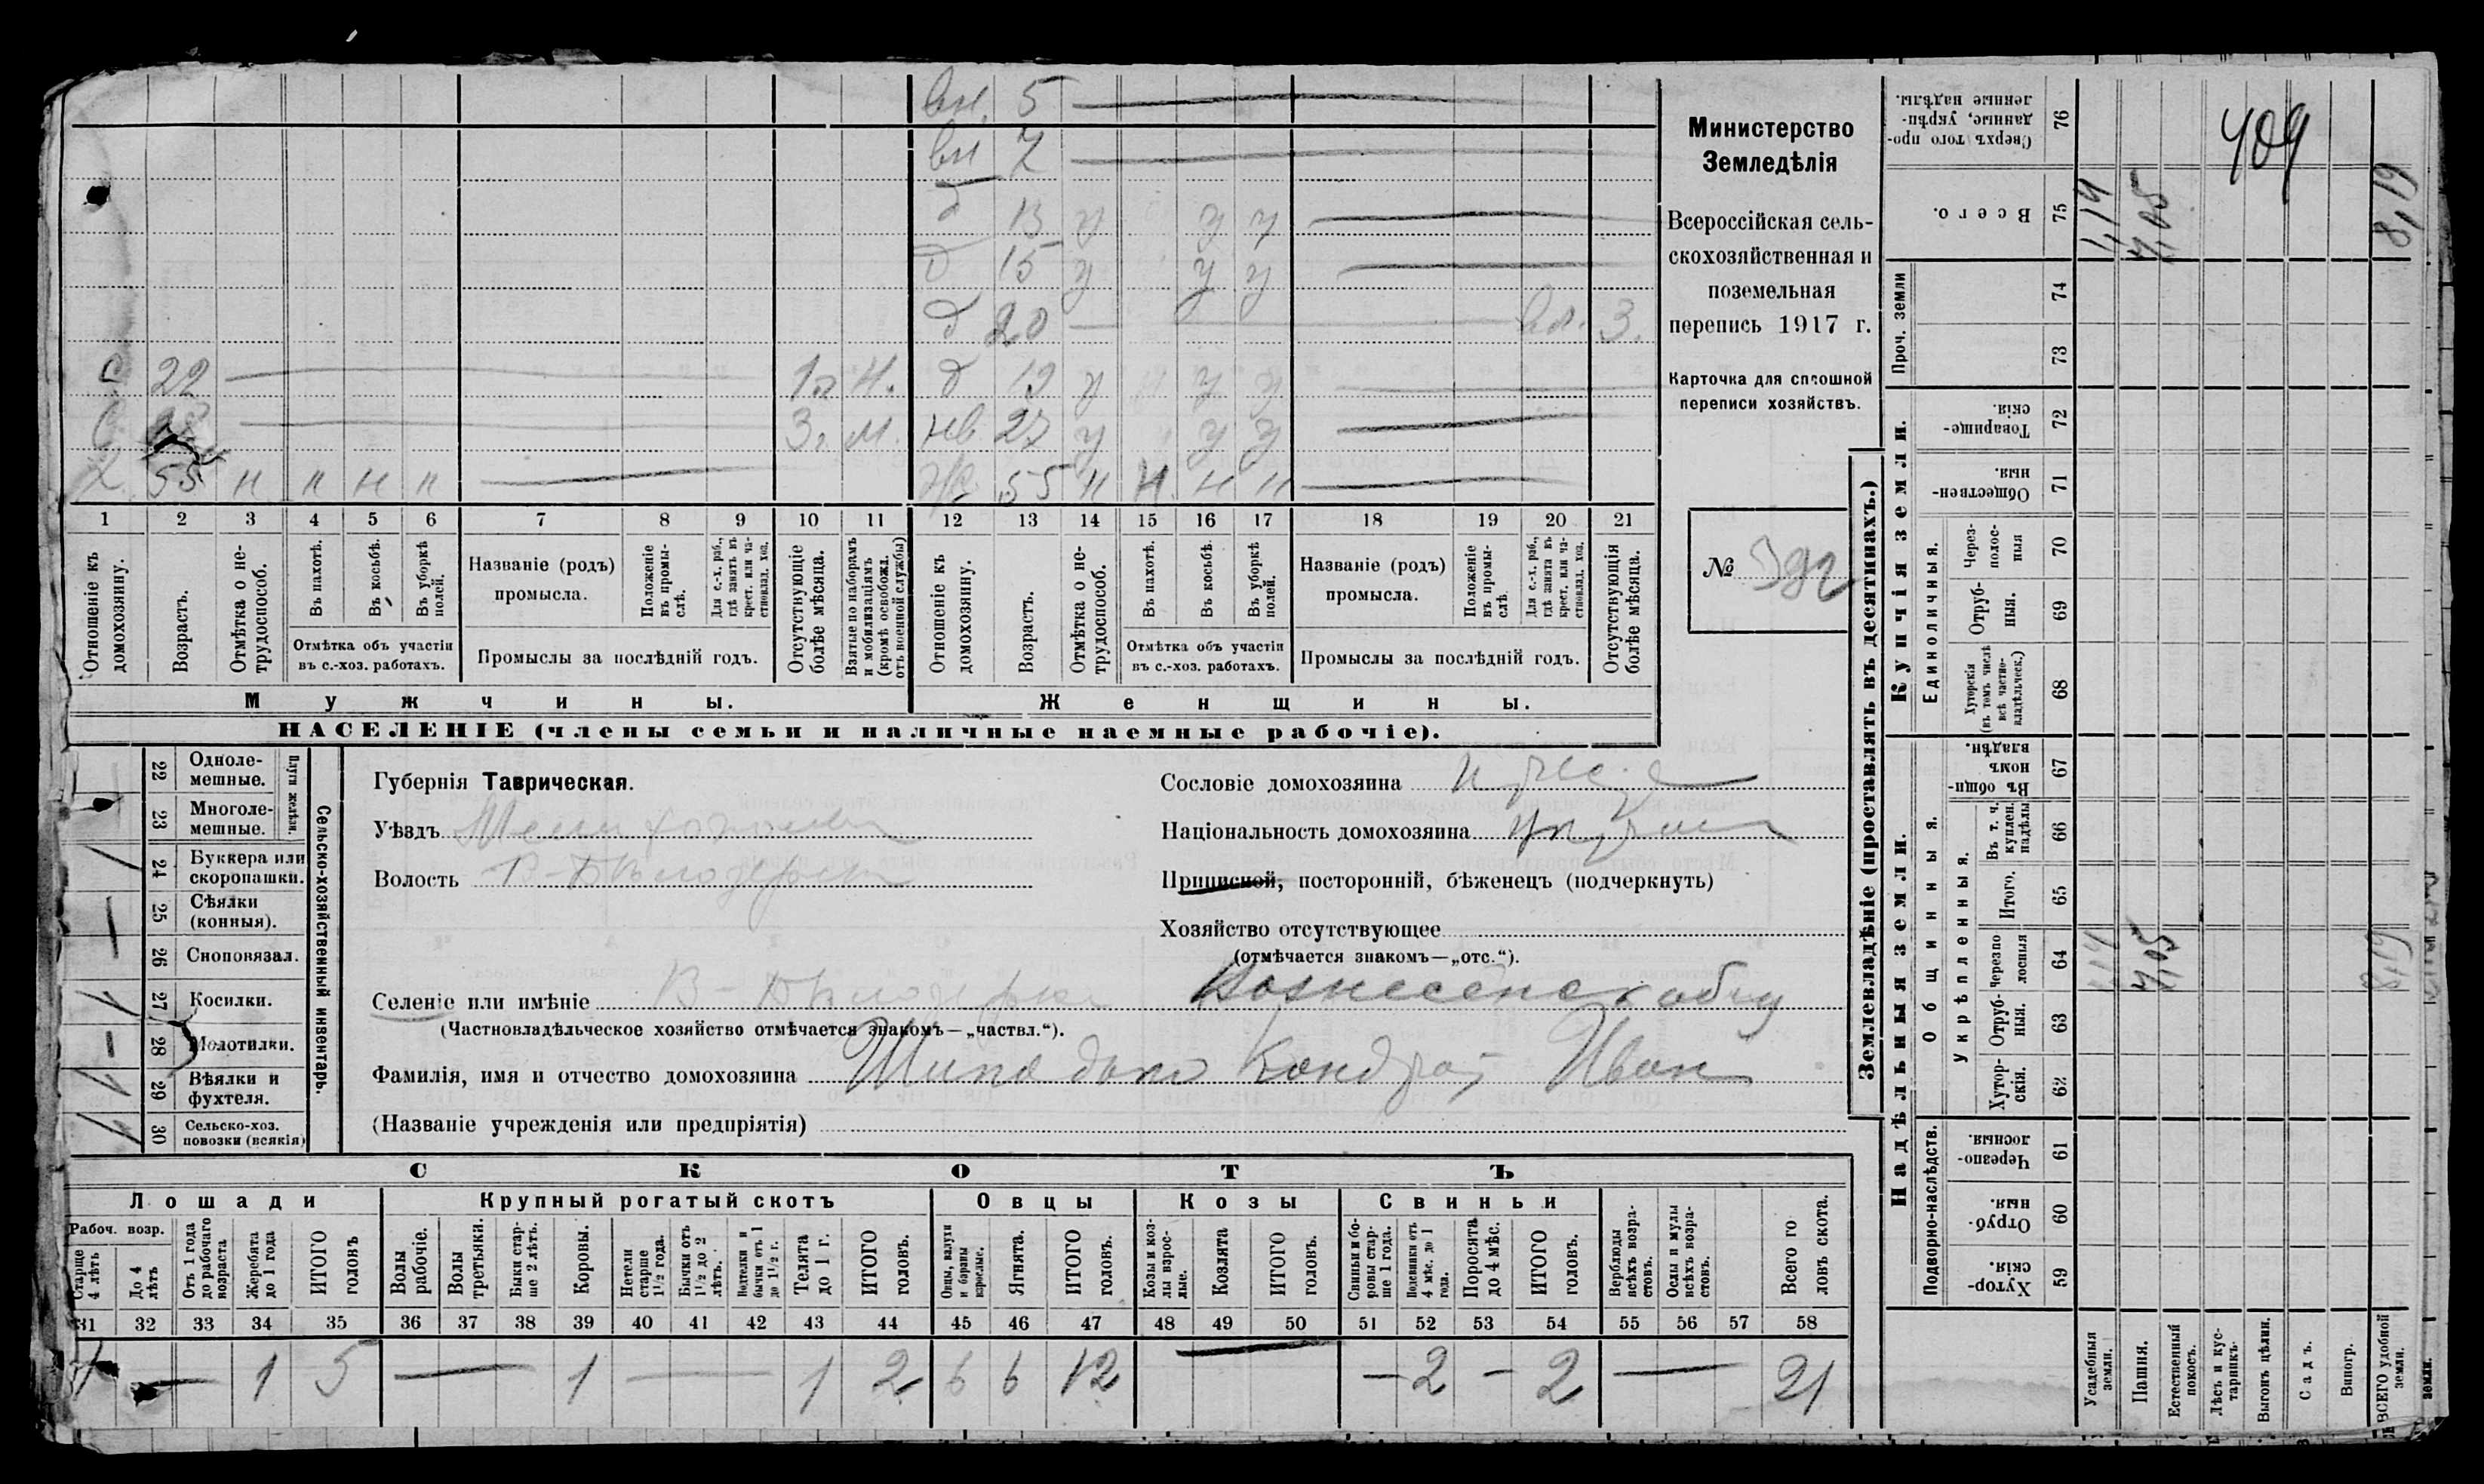 вн. 5
вн 7
д 13 у у у
д 15 у у у
д 20 3.
С 22 1 г. Н. д 19 у у у
С 3 г. М. нв. 27 у у у
Х 55 н н н н Ж 55 н н н н
1 2 3 4 5 6 7 8 9 10 11 12 13 14 15 16 17 18 19 20 21
Отношеніе къ домохозяину.
Возрастъ.
Отмѣтка о нетрудоспособ.
Въ пахотѣ.
Въ косьбѣ.
Въ уборкѣ полей.
Отмѣтка объ участіи въ с.-хоз. работахъ.
Названіе (родъ) промысла.
Положеніе въ промыслѣ.
Для с.-х. раб., гдѣ занятъ въ крест. или частновлад. хоз.
Промыслы за послѣдній годъ.
Отсутствующіе болѣе мѣсяца.
Взятые по наборамъ и мобилизаціямъ (кромѣ освобожд. отъ военной службы)
Отношеніе къ домохозяину.
Возрастъ.
Отмѣтка о нетрудоспособ.
Въ пахотѣ.
Въ косьбѣ.
Въ уборкѣ полей.
Отмѣтка объ участіи въ с.-хоз. работахъ.
Названіе (родъ) промысла.
Положеніе въ промыслѣ.
Для с.-х. раб., гдѣ занята въ крест. или частновлад. хоз.
Промыслы за послѣдній годъ.
Отсутствующія болѣе мѣсяца.
Мужчины.
Женщины.
НАСЕЛЕНІЕ (члены семьи и наличные наемные рабочіе).
Министерство
Земледѣлія
Всероссійская сель-
скохозяйственная и
поземельная
перепись 1917 г.
Карточка для сплошной
переписи хозяйствъ.
№ 392
Сельско-хозяйственный инвентарь.
Плуги желѣзн.
22 Одноле-
мешные.
23 Многоле-
мешные.
24 Буккера или
скоропашки.
25 Сѣялки
(конныя).
26 Сноповязал.
27 Косилки.
28 Молотилки.
29 Вѣялки и
фухтеля.
30 Сельско-хоз.
повозки (всякія)
Губернія Таврическая.
Уѣздъ
Волость В-Бѣлозерск
Селеніе или имѣніе В-Бѣлозерка Вознесенск общ
(Частновладѣльческое хозяйство отмѣчается знакомъ—„частвл.“).
Фамилія, имя и отчество домохозяина Шиподало Кондрат Иван
(Названіе учрежденія или предпріятія)
Сословіе домохозяина
Національность домохозяина
Приписной, посторонній, бѣженецъ (подчеркнуть)
Хозяйство отсутствующее
(отмѣчается знакомъ—„отс.“).
СКОТЪ
Лошади Крупный рогатый скотъ Овцы Козы Свиньи
Рабоч. возр.
Старше 4 лѣтъ
До 4 лѣтъ
Отъ 1 года до рабочаго возраста
Жеребята до 1 года
ИТОГО головъ
Волы рабочіе.
Волы третьяки.
Быки старше 2 лѣтъ.
Коровы.
Нетели старше 1 1/2 года.
Бычки отъ 1 1/2 до 2 лѣтъ.
Телята до 1 г.
ИТОГО головъ.
Овцы, валухи и бараны взрослые.
Ягнята.
ИТОГО головъ.
Козы и козлы взрослые.
Козлята
ИТОГО головъ.
Свиньи и боровы старше 1 года.
Подсвинки отъ 4 мѣс. до 1 года.
Поросята до 4 мѣс.
ИТОГО головъ.
Верблюды всѣхъ возрастовъ.
Ослы и мулы всѣхъ возрастовъ.
Всего головъ скота.
31 32 33 34 35 36 37 38 39 40 41 42 43 44 45 46 47 48 49 50 51 52 53 54 55 56 57 58
— 1 5 — 1 — 1 2 6 6 12 — — 2 — 2 — 21
Землевладѣніе (проставлять въ десятинахъ.)
Надѣльныя земли.
Купчія земли.
Проч. земли
Подворно-наслѣдств.
Общинныя.
Укрѣпленныя.
Единоличныя.
Сверхъ того проданные, укрѣпленные надѣлы. 76
Всего. 75
74
73
Товарищескія. 72
Общественныя. 71
Черезполосныя 70
Отрубныя. 69
Хуторскія (въ томъ числѣ всѣ частновладѣльческ.) 68
Въ общинномъ владѣн. 67
Въ т. ч. куплен. надѣлы 66
Итого. 65
Черезполосныя 64
Отрубныя. 63
Хуторскія. 62
Черезполосныя. 61
Отрубныя. 60
Хуторскія. 59
Усадебныя земли.
Пашня.
Естественный покосъ.
Лѣсъ и кустарникъ.
Выгонъ цѣлин.
Садъ.
Виногр.
ВСЕГО удобной земли.
409
1,14
7,05
8,19
1,14
7,05
8,19